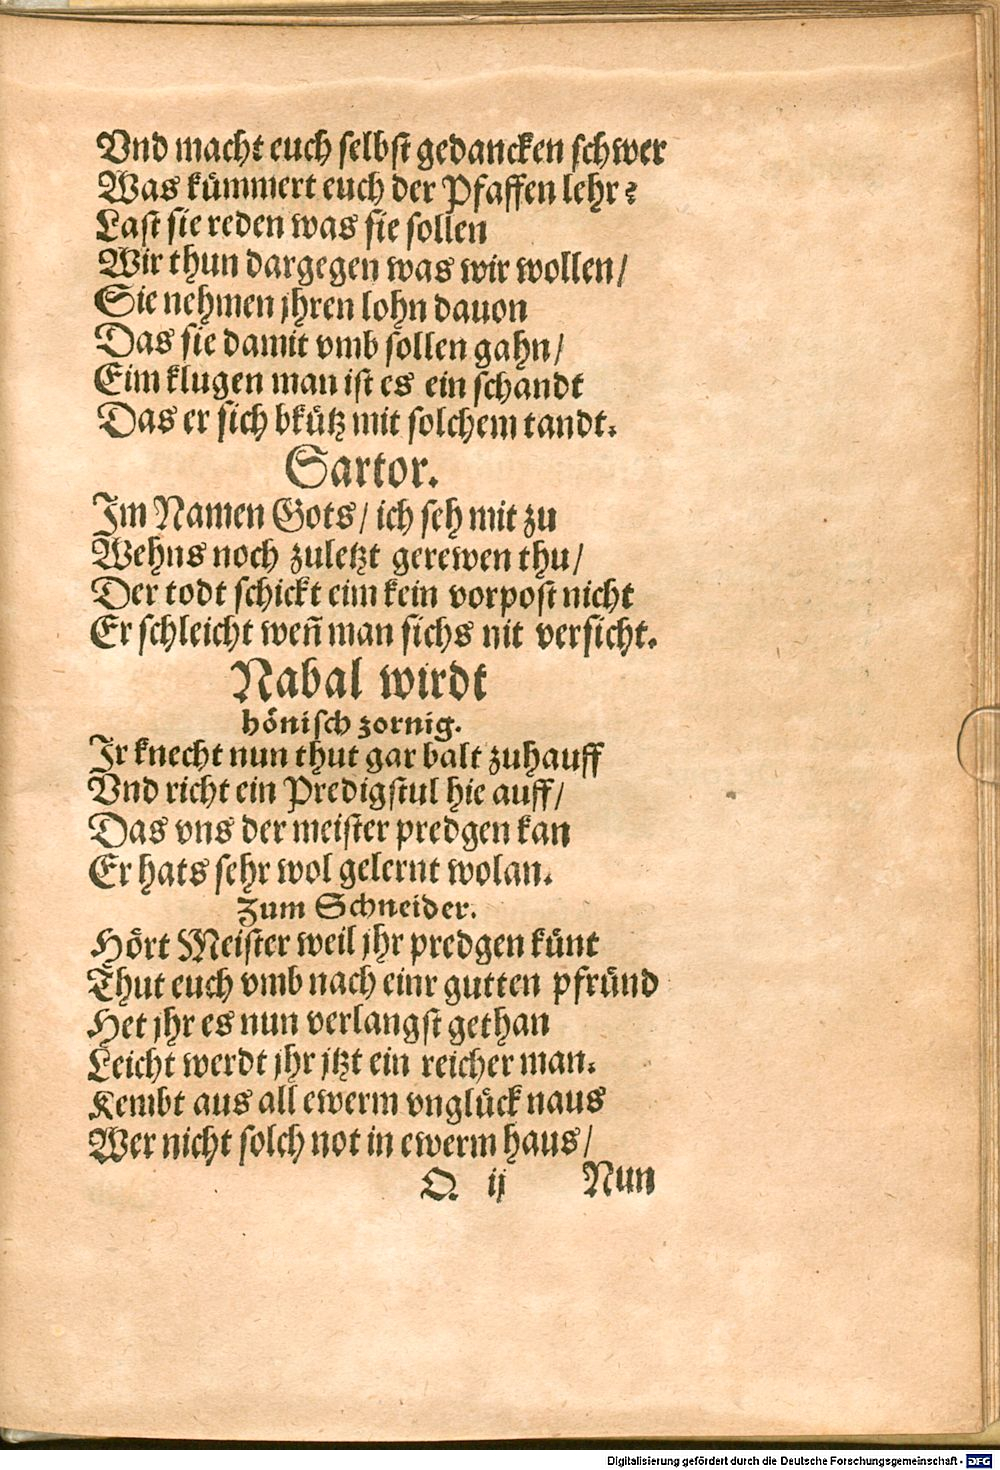 Vnd macht euch selbst gedancken schwer
Was kümmert euch der Pfaffen lehr?
Last sie reden was sie sollen
Wir thun dargegen was wir wollen/
Sie nehmen jhren lohn dauon
Das sie damit vmb sollen gahn/
Eim klugen man ist es ein schandt
Das er sich bkütz mit solchem tandt.
Sartor.
Im Namen Gots/ ich seh mit zu
Wehns noch zuletzt gerewen thu/
Der todt schickt eim kein vorpost nicht
Er schleicht weñ man sichs nit versicht.
Nabal wirdt
hönisch zornig.
Ir knecht nun thut gar balt zuhauff
Vnd richt ein Predigstul hie auff/
Das vns der meister predgen kan
Er hats sehr wol gelernt wolan.
Zum Schneider.
Hört Meister weil jhr predgen künt
Thut euch vmb nach einr gutten pfründ
Het jhr es nun verlangst gethan
Leicht werdt jhr jtzt ein reicher man.
Kembt aus all ewerm vnglück naus
Wer nicht solch not in ewerm haus/
O. ij Nun
Digitalisierung gefördert durch die Deutsche Forschungsgemeinschaft - DFG